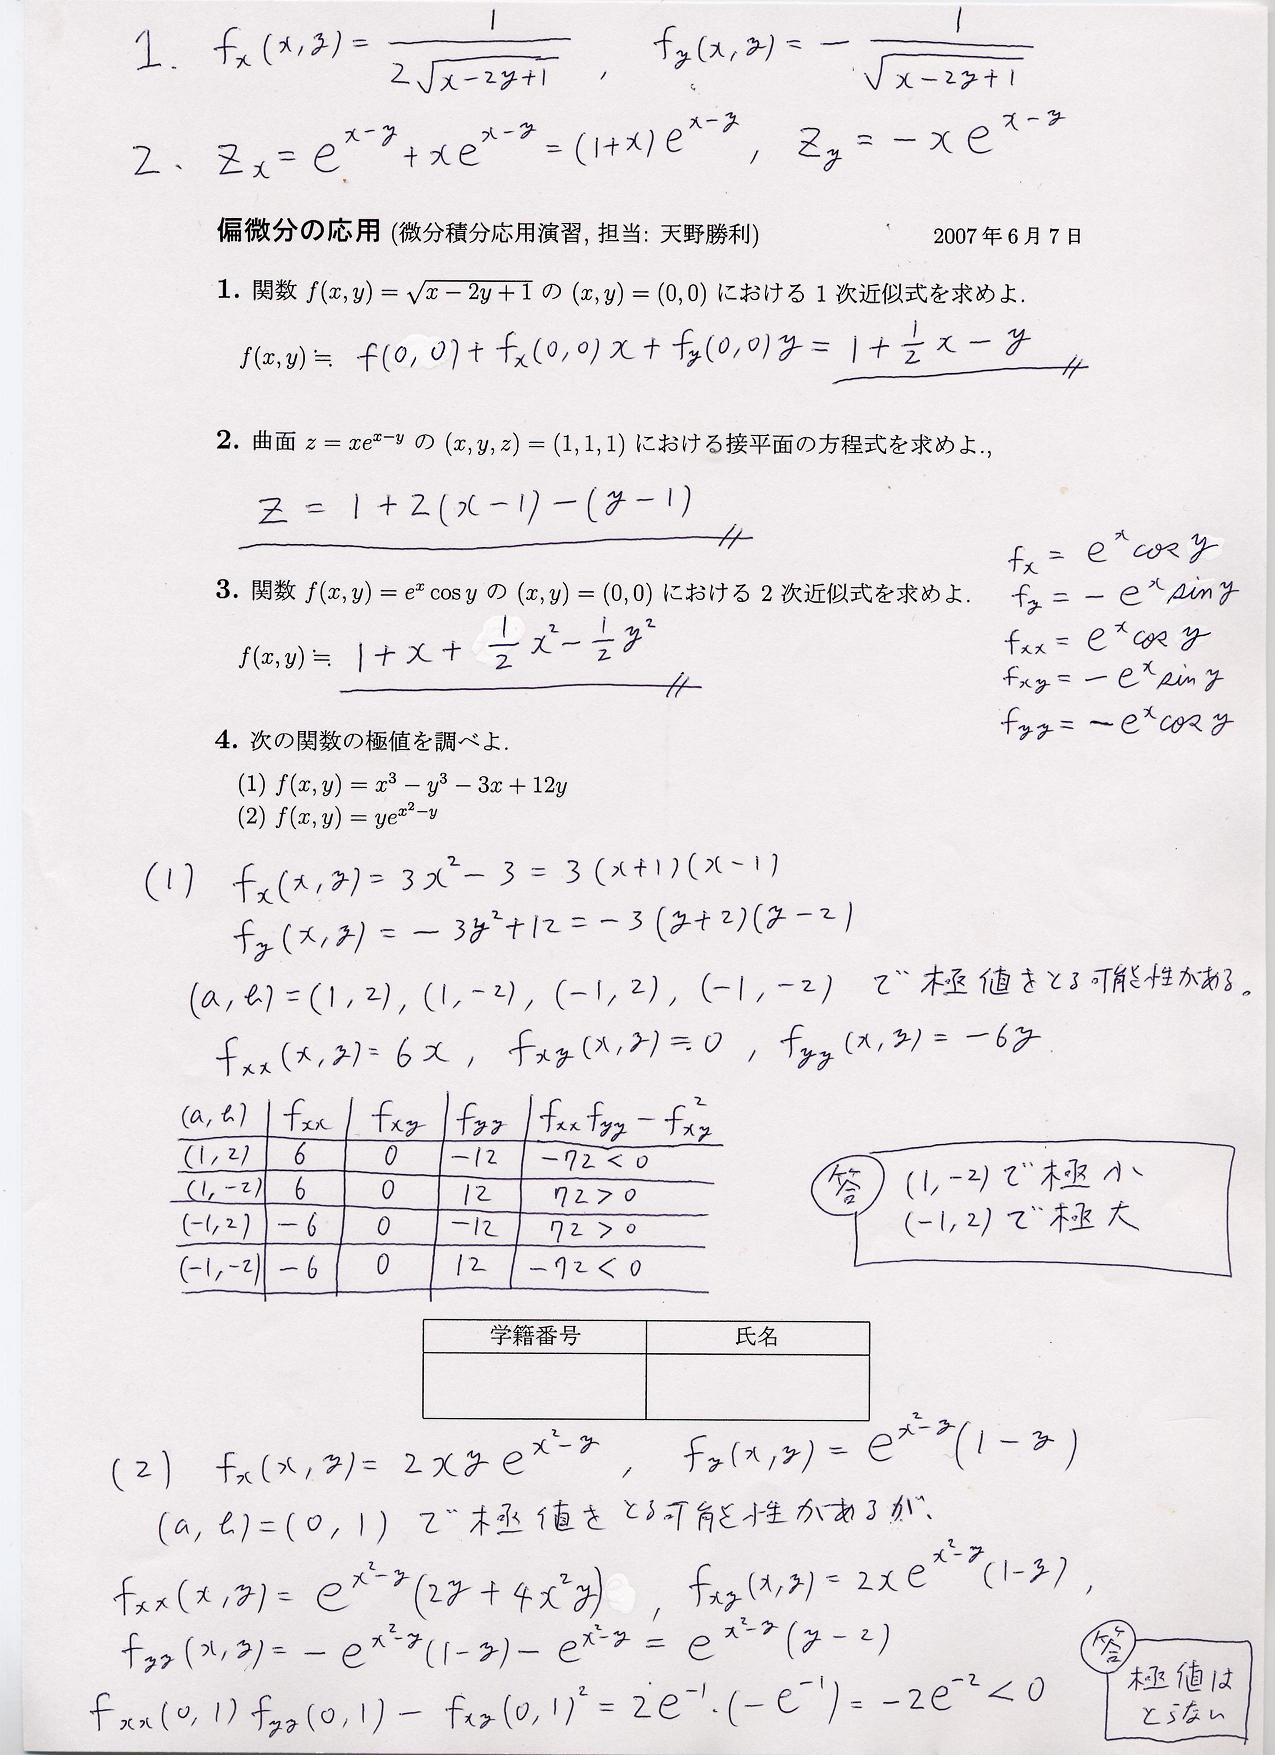 1. fx(x,y) = 1/(2√(x−2y+1)) , fy(x,y) = − 1/√(x−2y+1)
2. Zx = e^(x−y) + xe^(x−y) = (1+x)e^(x−y) , Zy = −xe^(x−y)
偏微分の応用 (微分積分応用演習, 担当: 天野勝利) 2007年6月7日
1. 関数 f(x,y) = √(x − 2y + 1) の (x,y) = (0,0) における 1 次近似式を求めよ.
f(x,y)≒ f(0,0) + fx(0,0)x + fy(0,0)y = 1 + 1/2 x − y
2. 曲面 z = xe^(x−y) の (x,y,z) = (1,1,1) における接平面の方程式を求めよ.,
Z = 1 + 2(x−1) − (y−1)
3. 関数 f(x,y) = e^x cos y の (x,y) = (0,0) における 2 次近似式を求めよ.
f(x,y)≒ 1 + x + 1/2 x² − 1/2 y²
fx = e^x cos y
fy = − e^x sin y
fxx = e^x cos y
fxy = − e^x sin y
fyy = − e^x cos y
4. 次の関数の極値を調べよ.
(1) f(x,y) = x³ − y³ − 3x + 12y
(2) f(x,y) = ye^(x²−y)
(1) fx(x,y) = 3x² − 3 = 3(x+1)(x−1)
fy(x,y) = −3y² + 12 = −3(y+2)(y−2)
(a,b) = (1,2), (1,−2), (−1,2), (−1,−2) で極値をとる可能性がある。
fxx(x,y) = 6x , fxy(x,y) = 0 , fyy(x,y) = −6y
(a,b) fxx fxy fyy fxx fyy − fxy²
(1,2) 6 0 −12 −72 < 0
(1,−2) 6 0 12 72 > 0
(−1,2) −6 0 −12 72 > 0
(−1,−2) −6 0 12 −72 < 0
答 (1,−2) で極小
(−1,2) で極大
学籍番号 氏名
(2) fx(x,y) = 2xye^(x²−y) , fy(x,y) = e^(x²−y)(1−y)
(a,b) = (0,1) で極値をとる可能性があるが、
fxx(x,y) = e^(x²−y)(2y + 4x²y) , fxy(x,y) = 2xe^(x²−y)(1−y) ,
fyy(x,y) = −e^(x²−y)(1−y) − e^(x²−y) = e^(x²−y)(y−2)
fxx(0,1)fyy(0,1) − fxy(0,1)² = 2e^(−1)・(−e^(−1)) = −2e^(−2) < 0
答 極値は
とらない